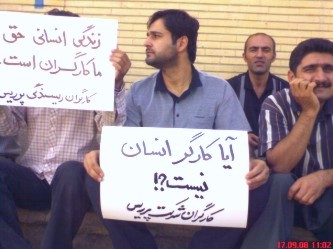 زندگی انسانی حق
ما کارگران است.
کارگران ریسندگی پریس
آیا کارگر انسان
نیست؟!
کارگران شرکت پریس
17.09.06 11:02